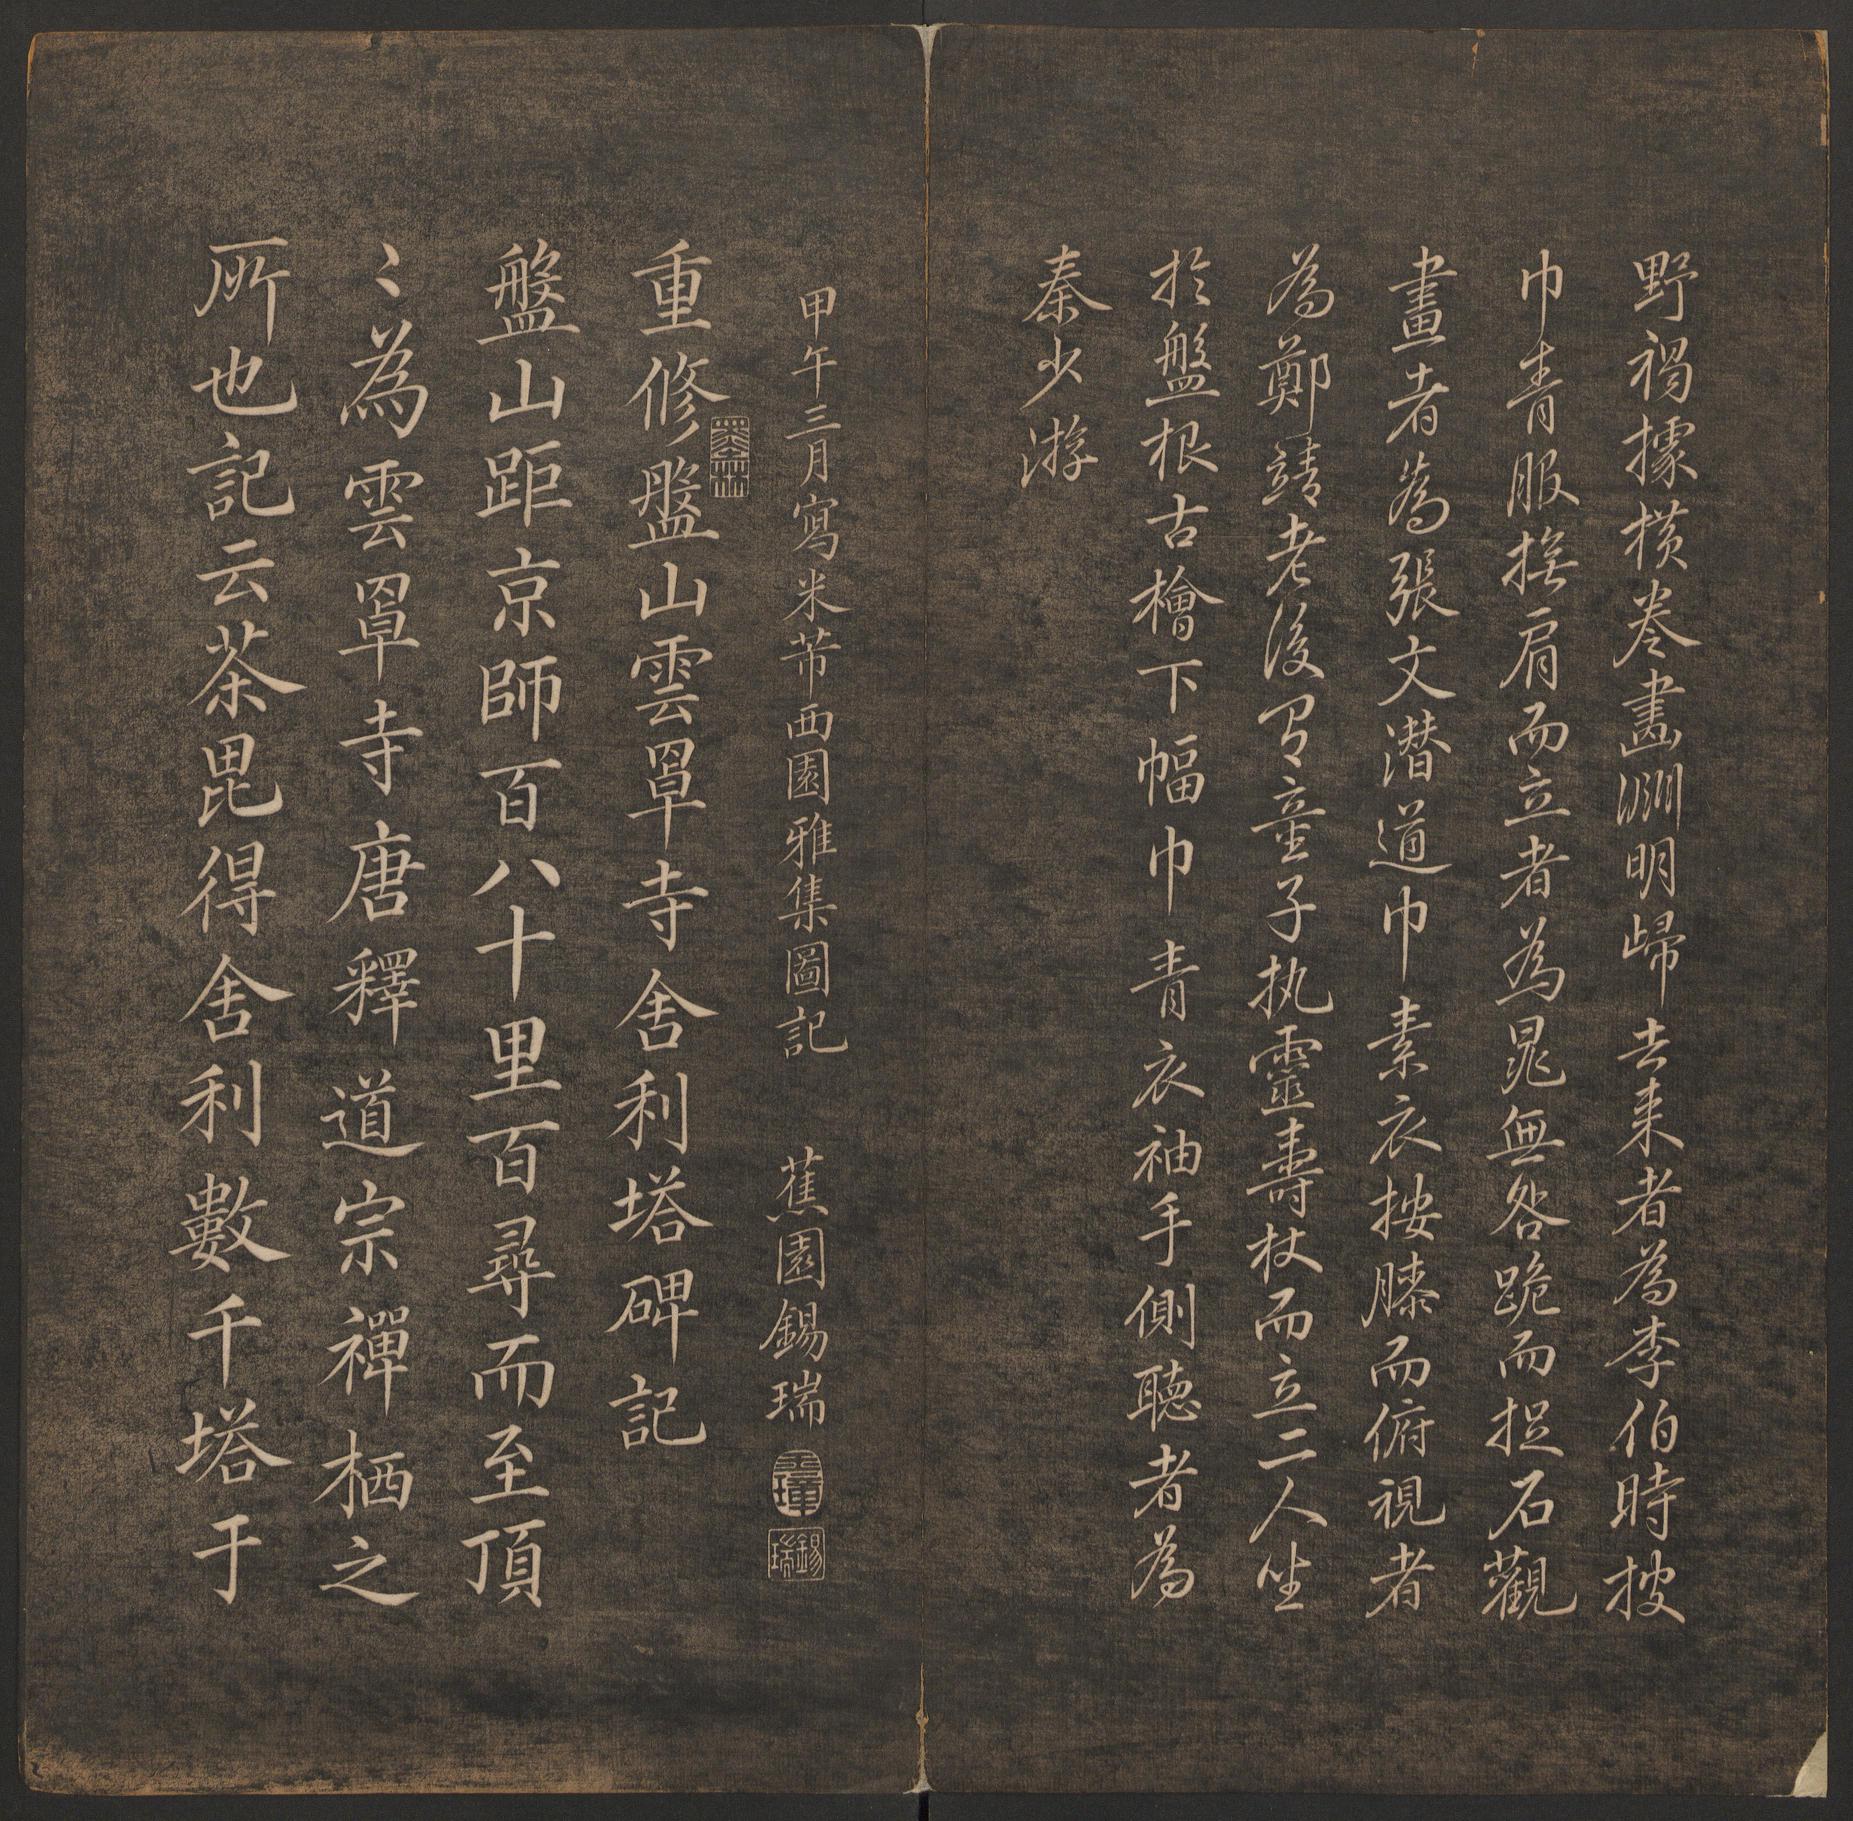 野褐據橫卷畫淵明歸去来者為李伯時披
巾青服撫肩而立者為晁無咎跪而捉石觀
畫者為張文潛道巾素衣按膝而俯視者
為鄭靖老後有童子执靈壽杖而立二人坐
於盤根古檜下幅巾青衣袖手側聽者為
秦少游
甲午三月寫米芾西園雅集圖記 蕉園錫瑞
錫瑞
重修盤山雲罩寺舍利塔碑記
盤山距京師百八十里百尋而至頂
〻為雲罩寺唐釋道宗禪栖之
所也記云茶毘得舍利數千塔于